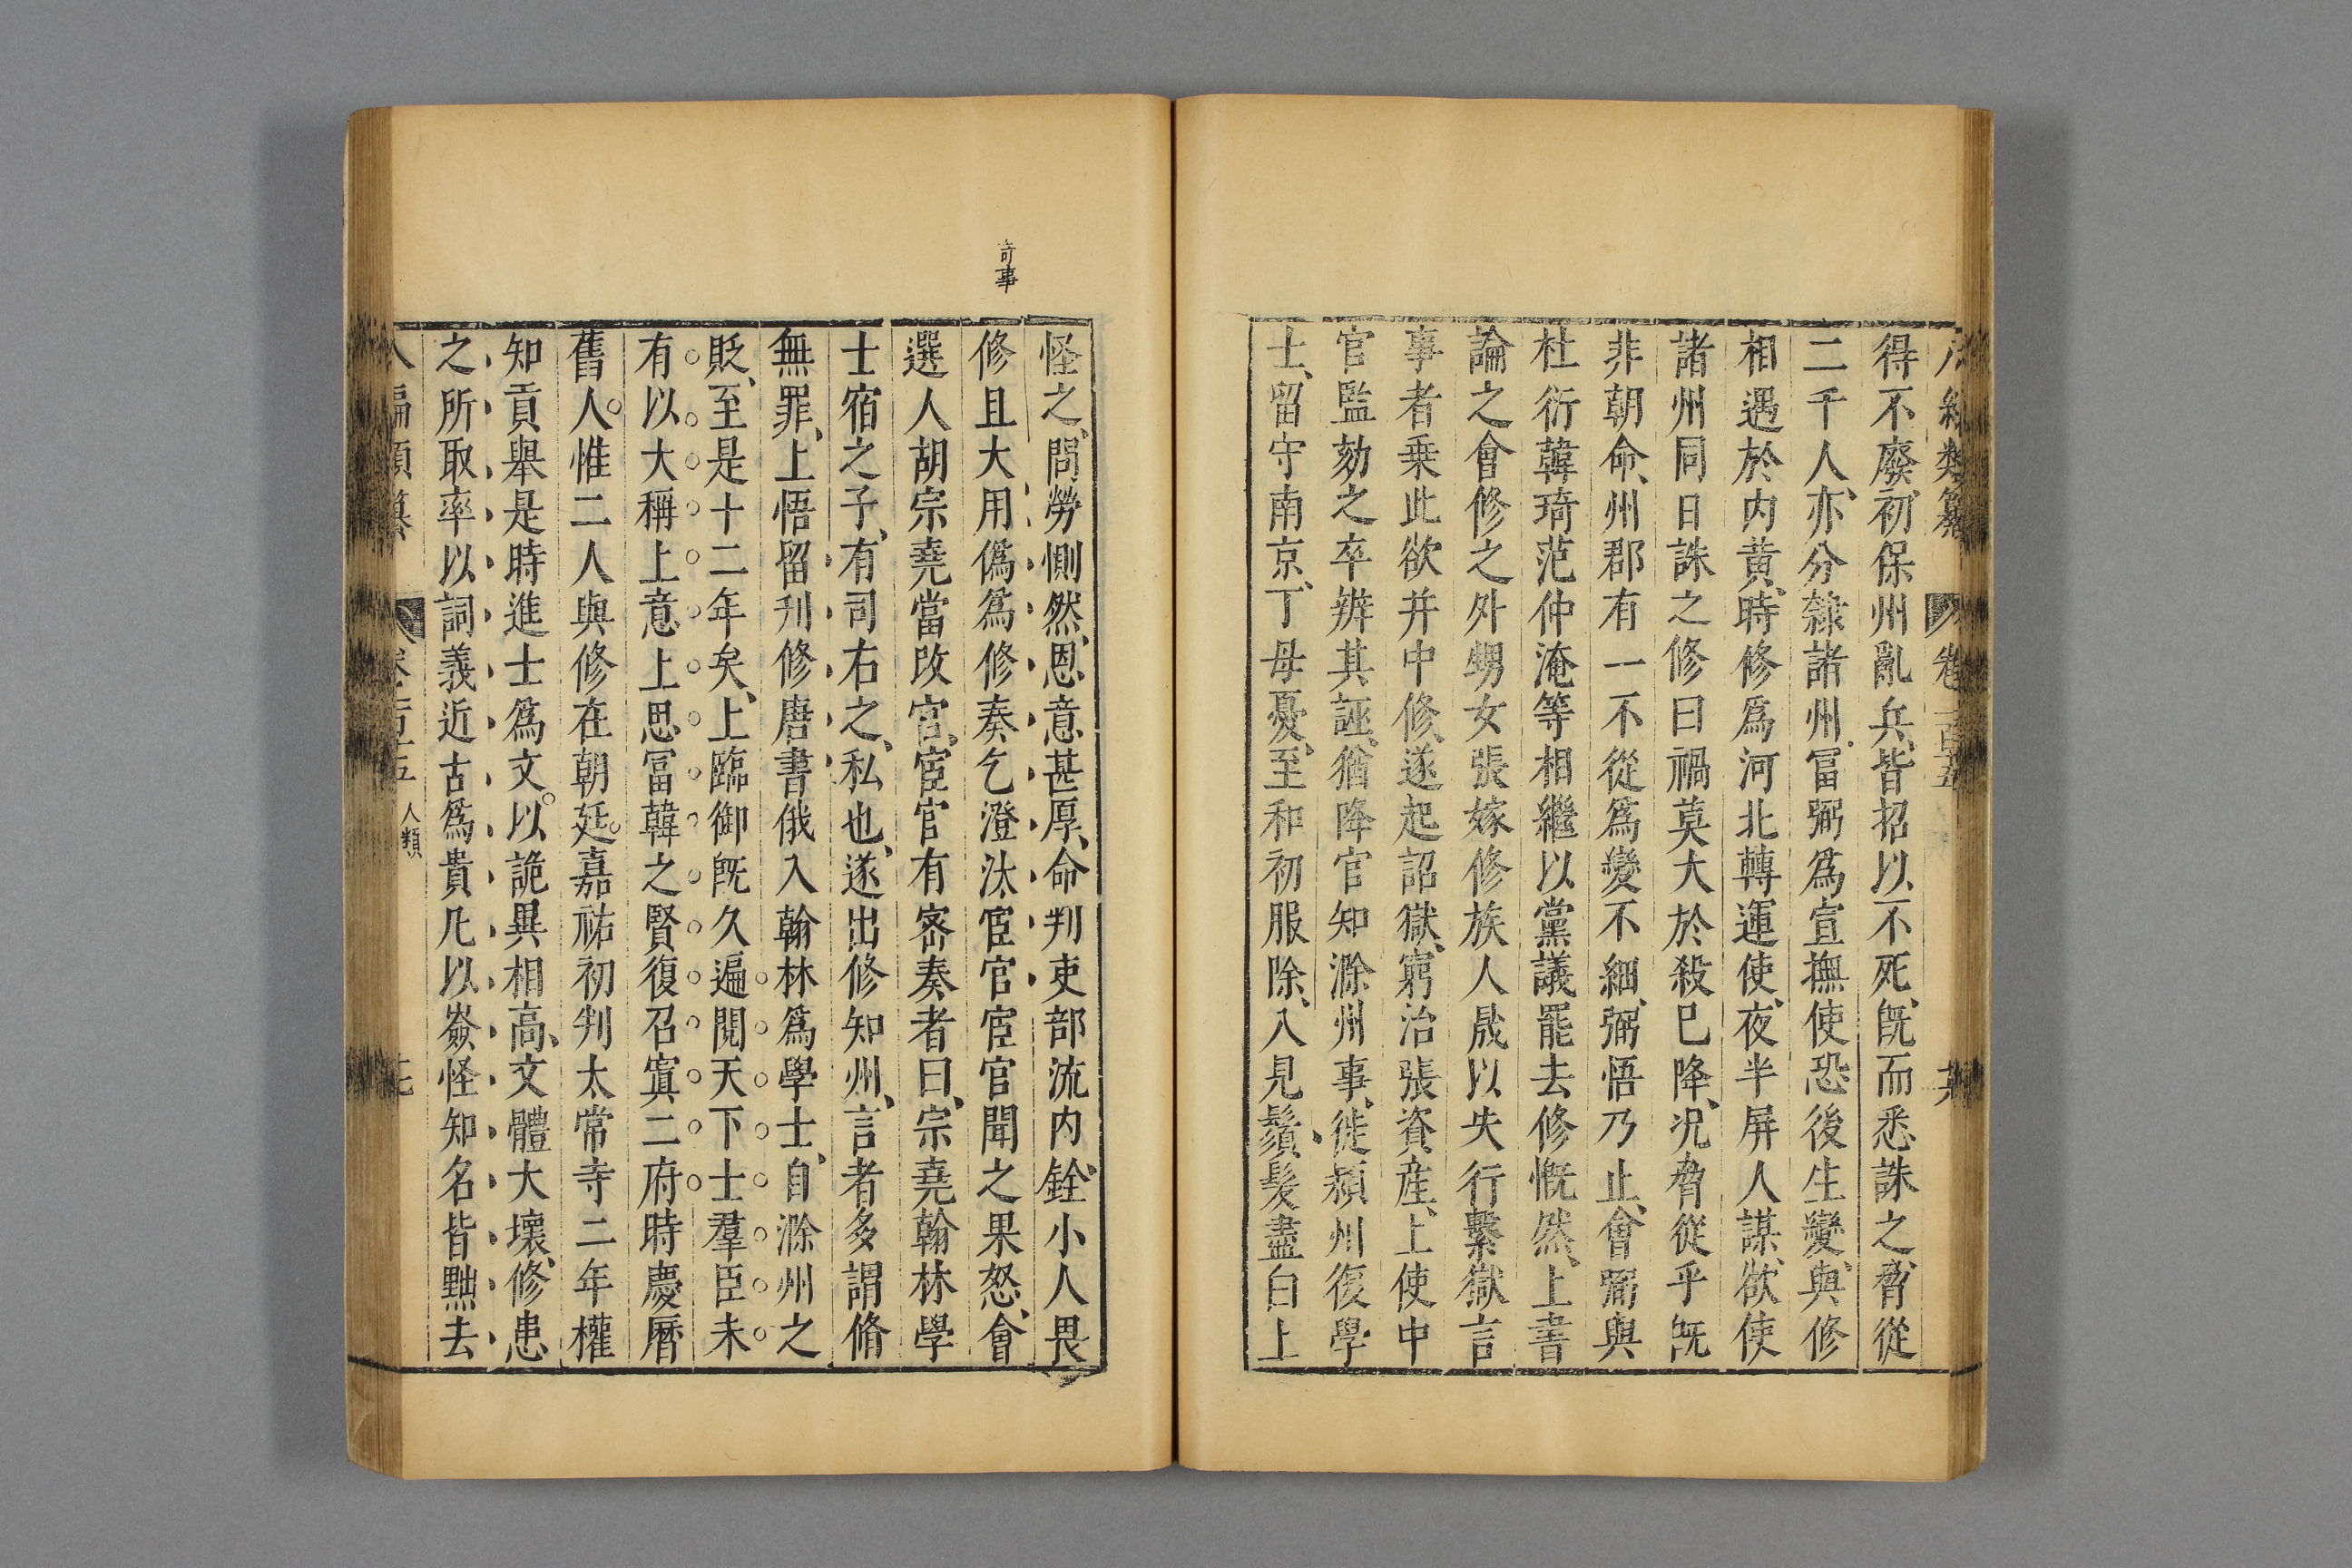 編類纂 卷一百五 十六
得不廢初保州亂兵皆招以不死旣而悉誅之脅從
二千人亦分隸諸州冨弼爲宣撫使恐後生變與修
相遇於内黃時修爲河北轉運使夜半屏人謀欲使
諸州同日誅之修曰禍莫大於殺已降况脅從乎旣
非朝命州郡有一不從爲變不細弼悟乃止會弼與
杜衍韓琦范仲淹等相繼以黨議罷去修慨然上書
論之會修之外甥女張嫁修族人晟以失行繫獄言
事者乗此欲并中修遂起詔獄窮治張資産上使中
官監劾之卒辨其誣猶降官知滁州事徙潁州復學
士留守南京丁母憂至和初服除入見鬚髮盡白上
奇事
怪之問勞惻然恩意甚厚命判吏部流内銓小人畏
修且大用僞爲修奏乞澄汰宦官宦官聞之果怒會
選人胡宗堯當改官宦官有密奏者曰宗堯翰林學
士宿之子有司右之私也遂出修知州言者多謂脩
無罪上悟留刋修唐書俄入翰林爲學士自滁州之
貶至是十二年矣上臨御旣久遍閱天下士羣臣未
有以大稱上意上思冨韓之賢復召寘二府時慶曆
舊人惟二人與修在朝廷嘉祐初判太常寺二年權
知貢舉是時進士爲文以詭異相高文體大壞修患
之所取率以詞義近古爲貴凡以嶮怪知名皆黜去
八編類纂 卷一百五 人類 十七